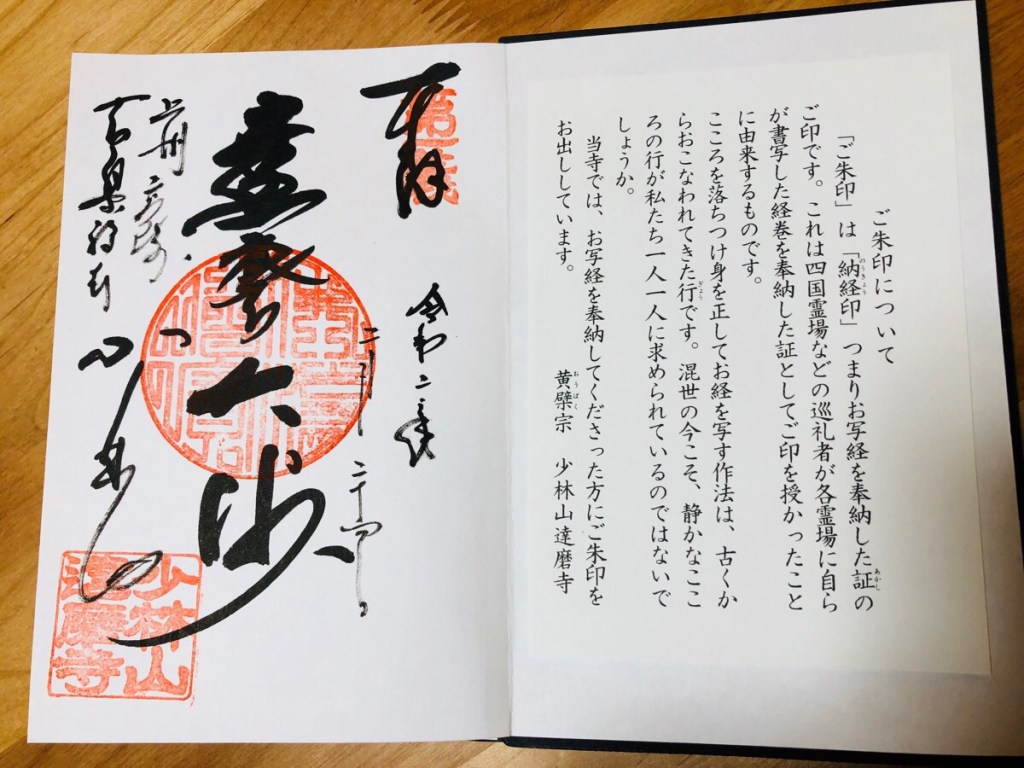 ご朱印について
「ご朱印」は「納経印」つまりお写経を奉納した証の
ご印です。これは四国霊場などの巡礼者が各霊場に自ら
が書写した経巻を奉納した証としてご印を授かったこと
に由来するものです。
こころを落ちつけ身を正してお経を写す作法は、古くか
らおこなわれてきた行です。混世の今こそ、静かなここ
ろの行が私たち一人一人に求められているのではないで
しょうか。
当寺では、お写経を奉納してくださった方にご朱印を
お出ししています。　黄檗宗　少林山達磨寺
奉拝
令和二年
上州高崎
少林山
達磨寺